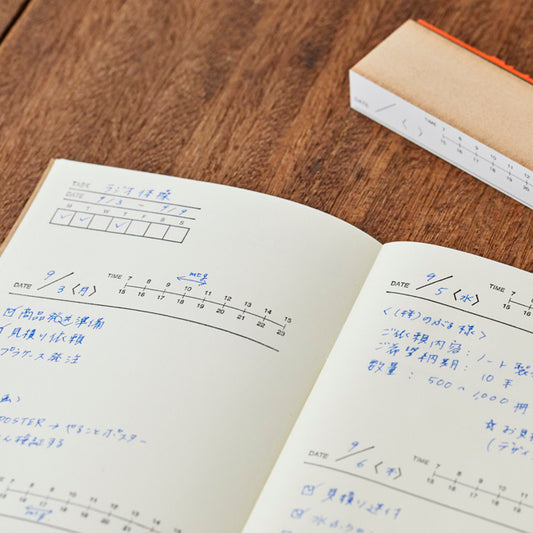 TASK ラジオ体操
DATE 9/3 ~ 9/9
M T W T F S S
✓ ✓ ✓
DATE 9/3 〈月〉
TIME 7 8 9 10 11 12 13 14 15
mtg
15 16 17 18 19 20 21 22 23
☑ 商品発送準備
✓ 見積り依頼
プラケース発注
POSTER → やることポスター
検証する
7 8 9 10 11 12 13 14
15 16 17 18 19 20 21
mtg
DATE / 〈 〉
TIME 7 8 9 10 11 12
15 16 17 18 19 20
DATE 9/5 〈水〉
TIME 7
15
〈(株)のぶる様〉
ご依頼内容: ノート製
ご希望納期: 10末
数量: 500~1000冊
☆お見
(デザイ
DATE 9/6 〈木〉
TIME 7 8 9 10 11
15 16 17 18 19
☑ 見積り送付